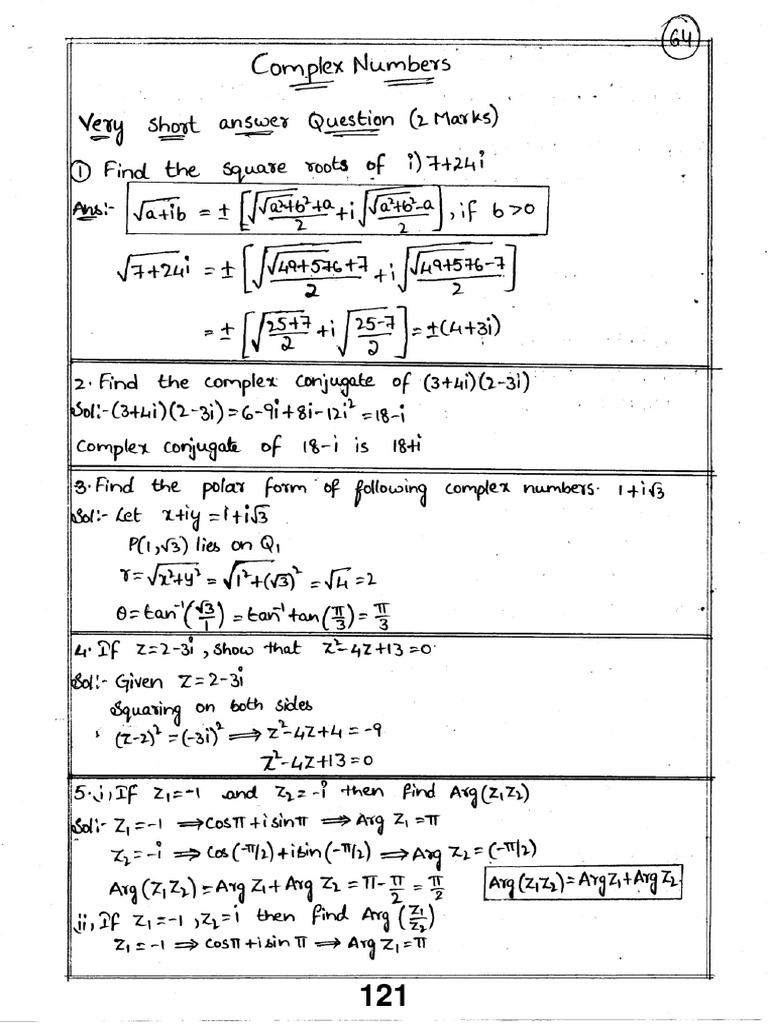 64
Complex Numbers
Very short answer Question (2 Marks)
① Find the square roots of i) 7+24i
Ans:- √a+ib = ± [√(√(a²+b²)+a)/2 + i√(√(a²+b²)-a)/2], if b>0
√7+24i = ± [√(√(49+576)+7)/2 + i√(√(49+576)-7)/2]
= ± [√(25+7)/2 + i√(25-7)/2] = ±(4+3i)
2. Find the complex conjugate of (3+4i)(2-3i)
Sol:- (3+4i)(2-3i) = 6-9i+8i-12i² = 18-i
Complex conjugate of 18-i is 18+i
3. Find the polar form of following complex numbers. 1+i√3
Sol:- Let x+iy = 1+i√3
P(1,√3) lies on Q₁
r = √(x²+y²) = √(1²+(√3)²) = √4 = 2
θ = tan⁻¹(√3/1) = tan⁻¹ tan(π/3) = π/3
4. If z=2-3i, show that z²-4z+13=0
Sol:- Given z=2-3i
Squaring on both sides
(z-2)² = (-3i)² ⟹ z²-4z+4 = -9
z²-4z+13=0
5. i, If z₁=-1 and z₂=-i then find Arg(z₁z₂)
Sol:- z₁=-1 ⟹ cosπ+isinπ ⟹ Arg z₁=π
z₂=-i ⟹ cos(-π/2)+isin(-π/2) ⟹ Arg z₂=(-π/2)
Arg(z₁z₂) = Arg z₁+Arg z₂ = π-π/2 = π/2 Arg(z₁z₂)=Argz₁+Argz₂
ii, If z₁=-1, z₂=i then find Arg(z₁/z₂)
z₁=-1 ⟹ cosπ+isinπ ⟹ Arg z₁=π
121